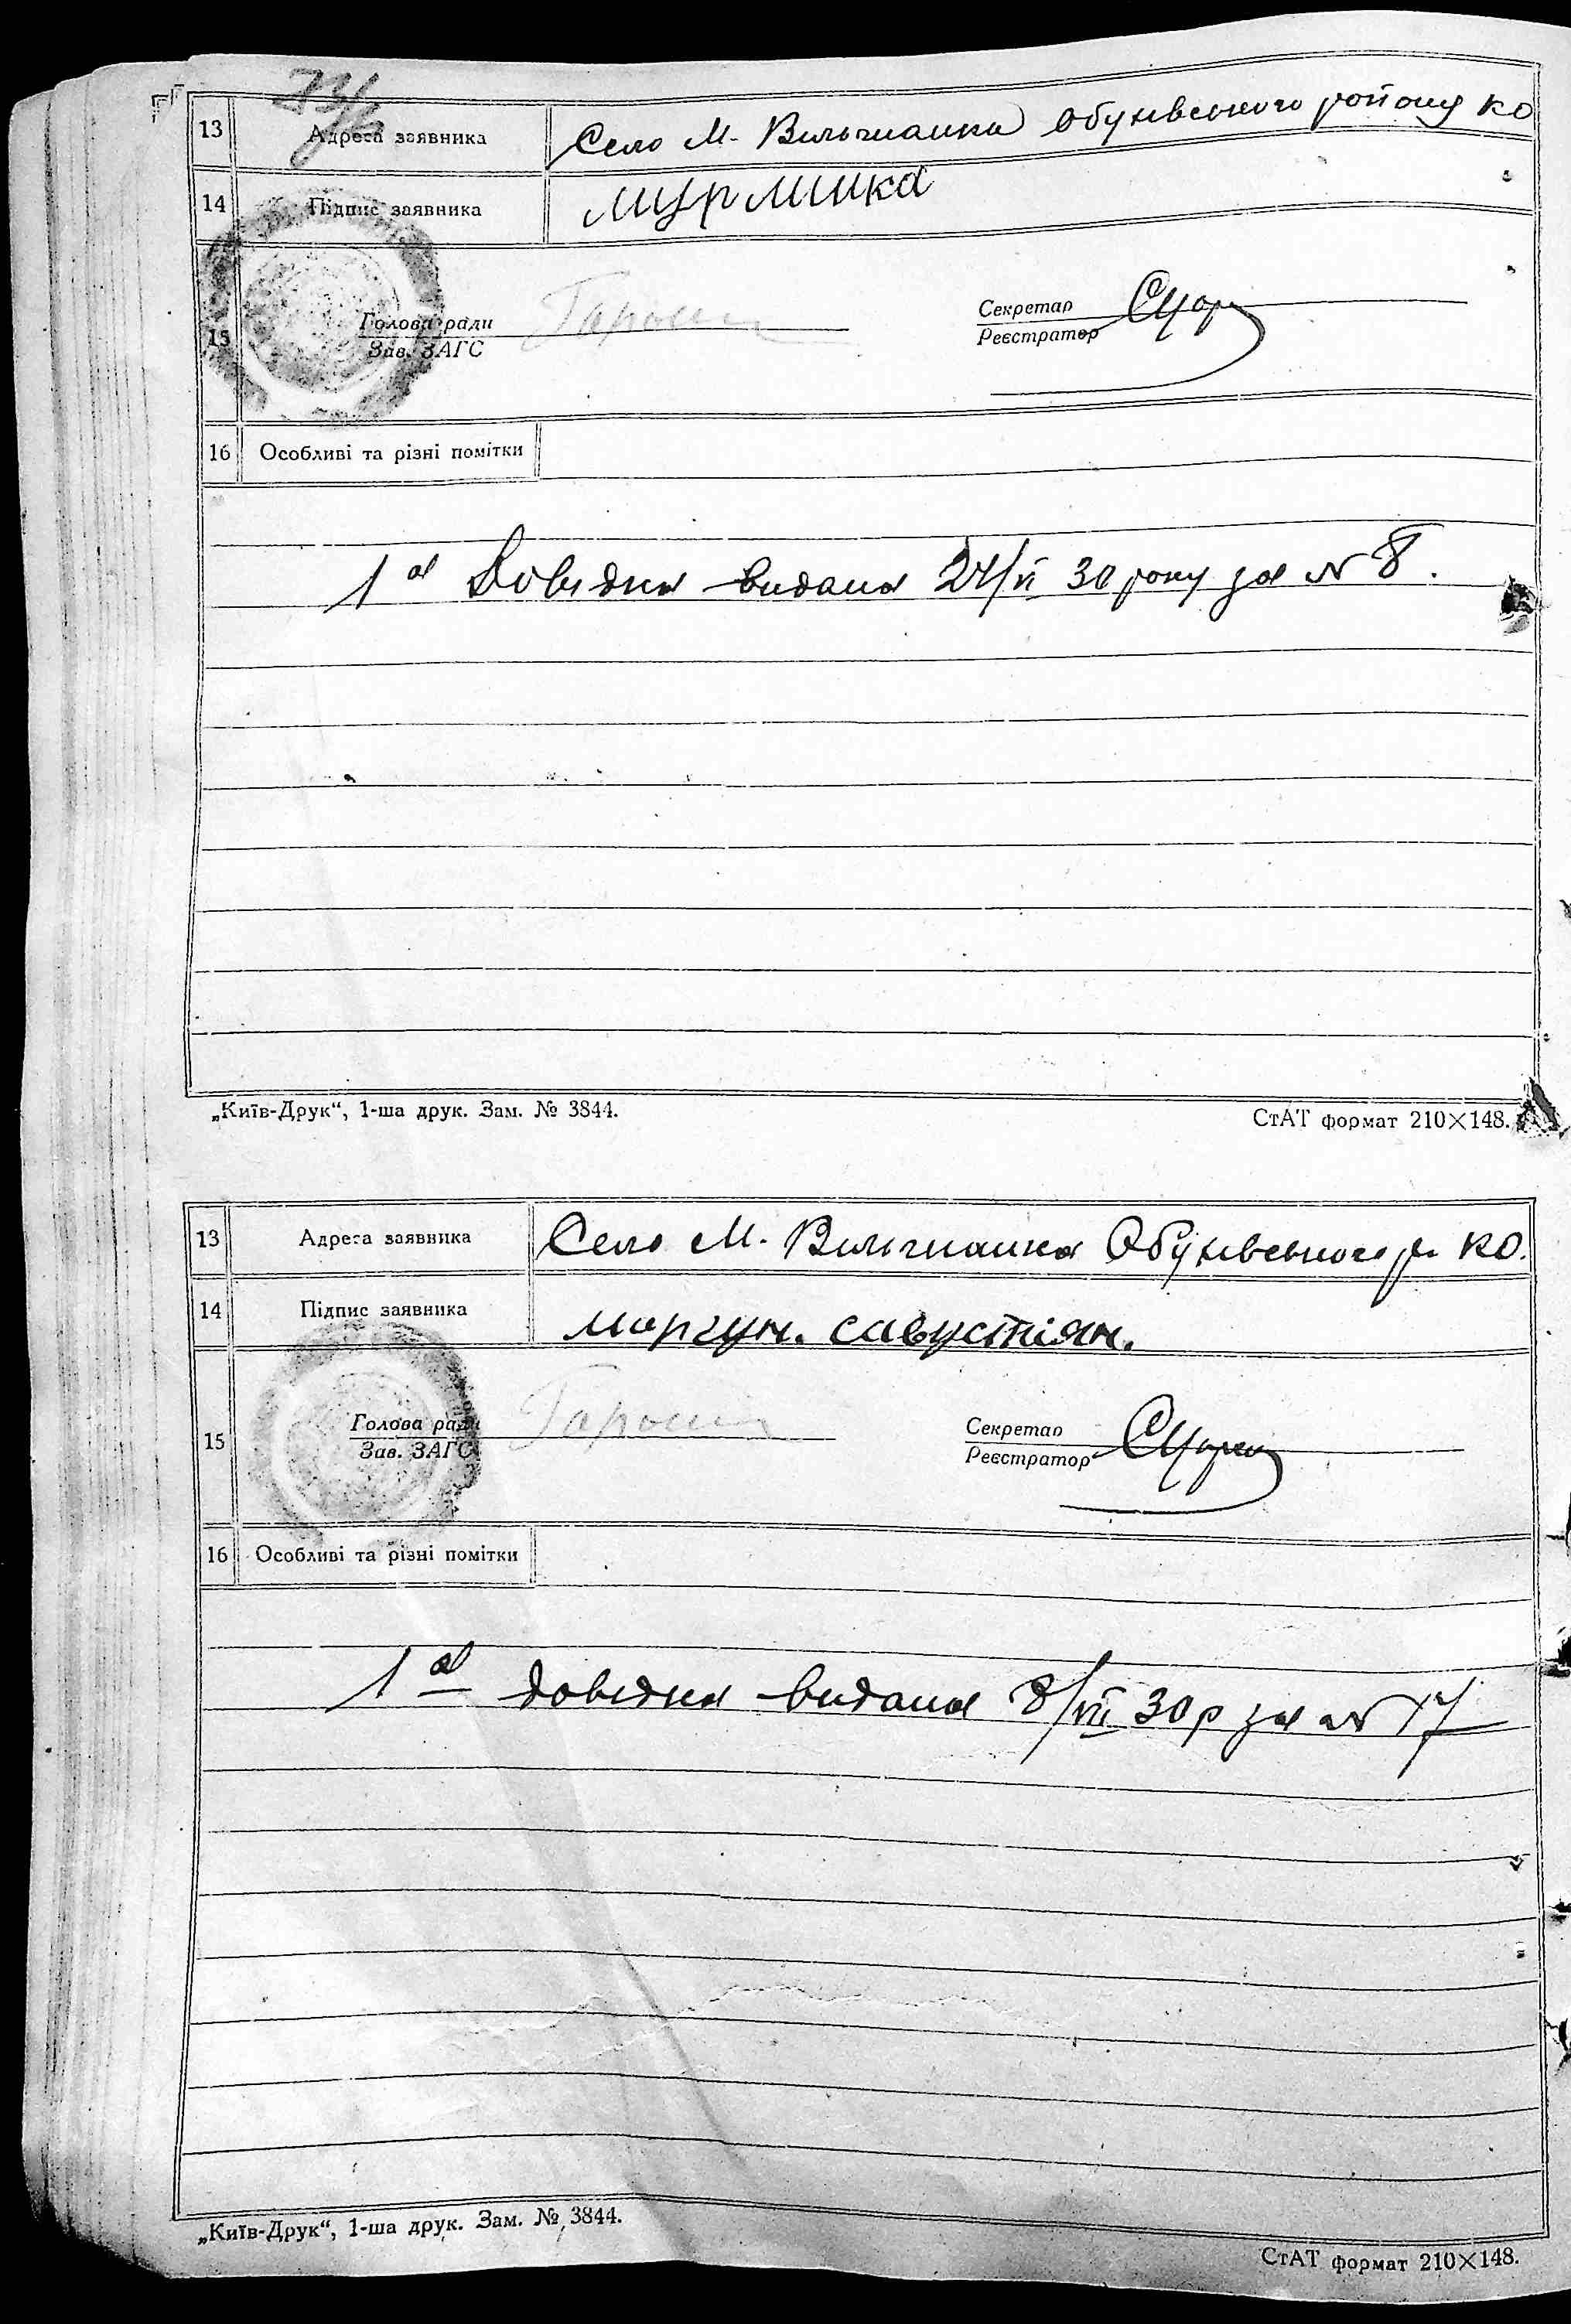 13 Адреса заявника Село М. Вильшанка Обухівського району КО
14 Підпис заявника
15 Голова ради Секретар
Зав. ЗАГС Реєстратор
16 Особливі та різні помітки
1а Довідка видана 24/VI 30 року за № 8.
„Київ-Друк“, 1-ша друк. Зам. № 3844. СтАТ формат 210×148.
13 Адреса заявника Село М. Вильшанка Обухівського р. КО.
14 Підпис заявника моргун. савустіян.
15 Голова ради Секретар
Зав. ЗАГС Реєстратор
16 Особливі та різні помітки
1а довідка видана 8/VII 30 р за № 17
„Київ-Друк“, 1-ша друк. Зам. № 3844.
СтАТ формат 210×148.